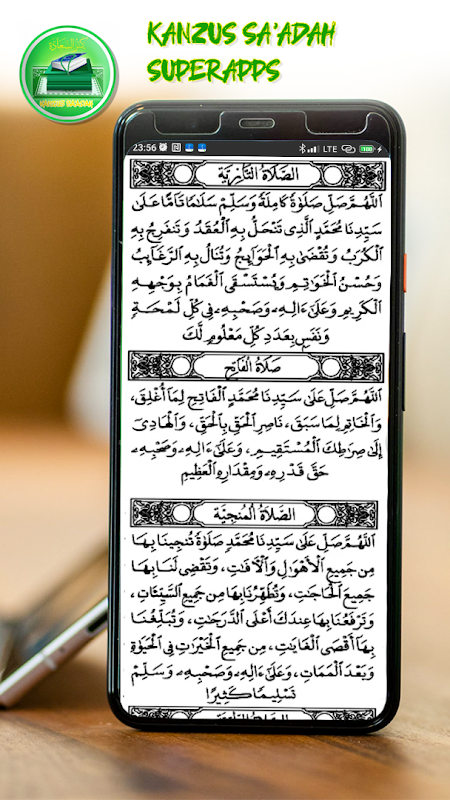 KANZUS SA'ADAH
SUPERAPPS
كنز السعادة
KANZUS SAADAH
23:56
LTE
الصَّلَاةُ التَّازِيَّة
اَللّٰهُمَّ صَلِّ صَلٰوةً كَامِلَةً وَسَلِّمْ سَلَامًا تَامًّا عَلٰى
سَيِّدِنَا مُحَمَّدٍ الَّذِى تَنْحَلُّ بِهِ الْعُقَدُ وَتَنْفَرِجُ بِهِ
الْكُرَبُ وَتُقْضٰى بِهِ الْحَوَائِجُ وَتُنَالُ بِهِ الرَّغَائِبُ
وَحُسْنُ الْخَوَاتِمِ وَيُسْتَسْقَى الْغَمَامُ بِوَجْهِهِ
الْكَرِيمِ وَعَلٰى اٰلِهِ وَصَحْبِهِ فِى كُلِّ لَمْحَةٍ
وَنَفَسٍ بِعَدَدِ كُلِّ مَعْلُومٍ لَكَ
صَلَاةُ الْفَاتِحِ
اَللّٰهُمَّ صَلِّ عَلٰى سَيِّدِنَا مُحَمَّدٍ الْفَاتِحِ لِمَا أُغْلِقَ،
وَالْخَاتِمِ لِمَا سَبَقَ، نَاصِرِ الْحَقِّ بِالْحَقِّ، وَالْهَادِى
إِلٰى صِرَاطِكَ الْمُسْتَقِيمِ، وَعَلٰى اٰلِهِ وَصَحْبِهِ،
حَقَّ قَدْرِهِ وَمِقْدَارِهِ الْعَظِيمِ
الصَّلَاةُ الْمُنْجِيَّة
اَللّٰهُمَّ صَلِّ عَلٰى سَيِّدِنَا مُحَمَّدٍ صَلٰوةً تُنْجِينَا بِهَا
مِنْ جَمِيعِ الْأَهْوَالِ وَالْاٰفَاتِ، وَتَقْضِى لَنَا بِهَا
جَمِيعَ الْحَاجَاتِ، وَتُطَهِّرُنَا بِهَا مِنْ جَمِيعِ السَّيِّئَاتِ،
وَتَرْفَعُنَا بِهَا عِنْدَكَ أَعْلَى الدَّرَجَاتِ، وَتُبَلِّغُنَا
بِهَا أَقْصَى الْغَايَاتِ، مِنْ جَمِيعِ الْخَيْرَاتِ فِى الْحَيٰوةِ
وَبَعْدَ الْمَمَاتِ، وَعَلٰى اٰلِهِ وَصَحْبِهِ وَسَلِّمْ
تَسْلِيمًا كَثِيرًا